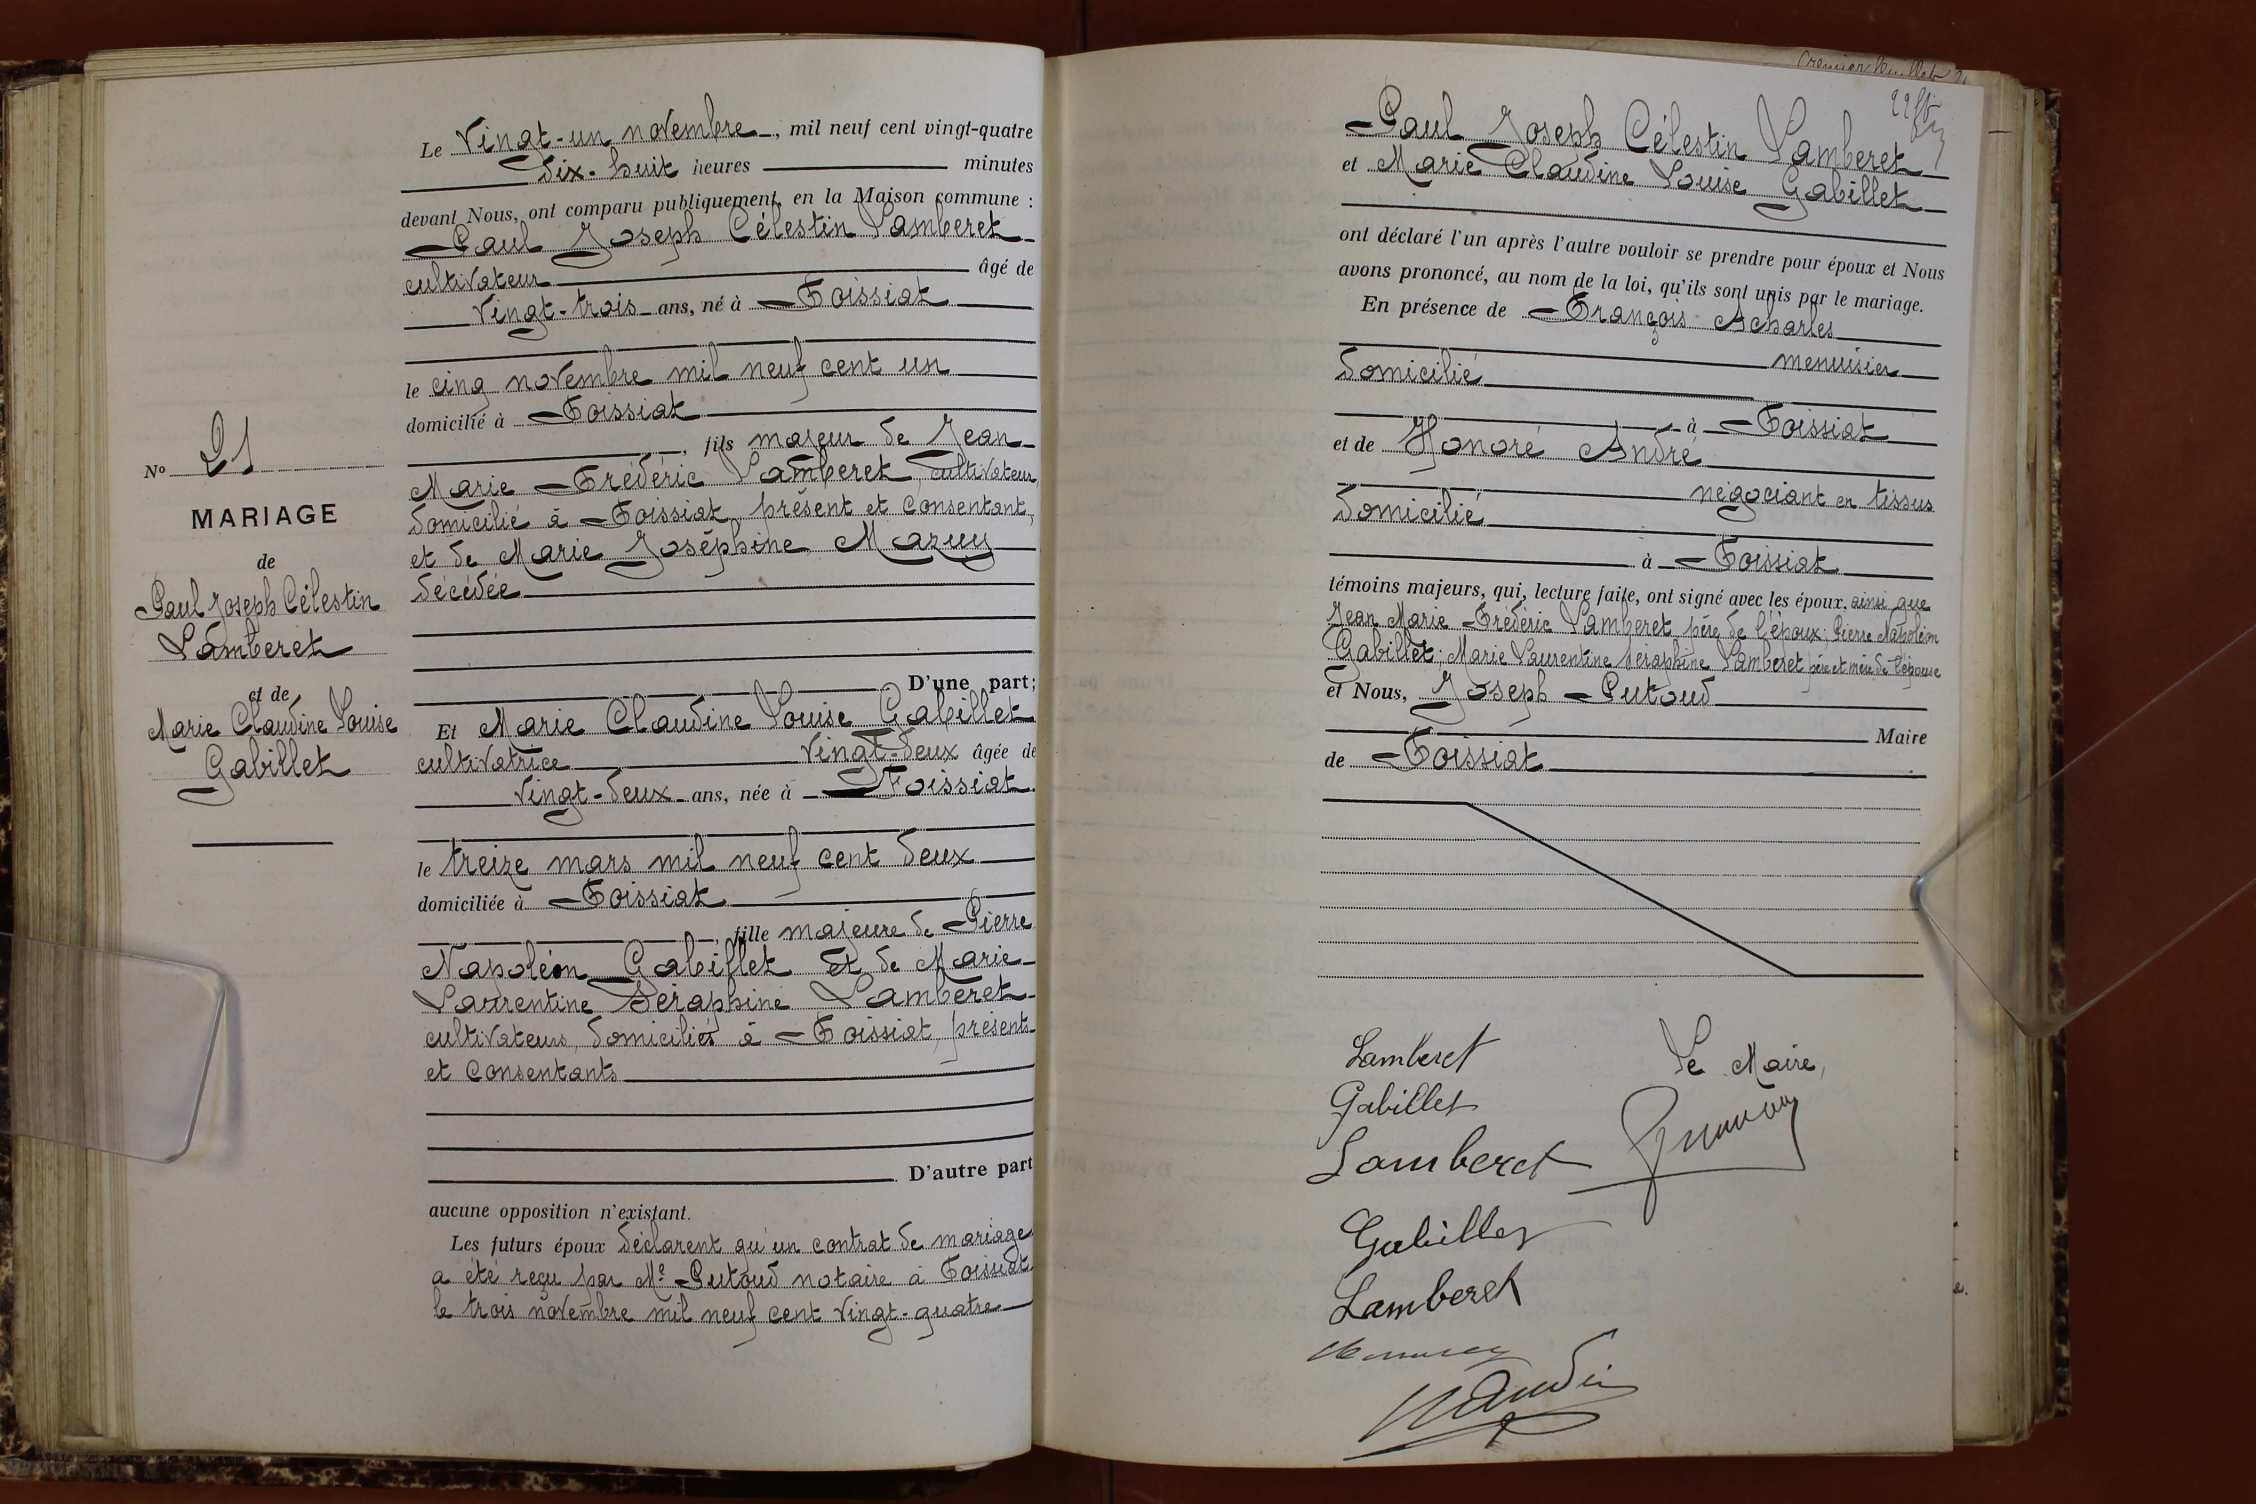 Le Vingt-un novembre, mil neuf cent vingt-quatre
dix-huit heures minutes
devant Nous, ont comparu publiquement, en la Maison commune :
Paul Joseph Célestin Lamberet
cultivateur âgé de
Vingt-trois ans, né à Foissiat
le cinq novembre mil neuf cent un
domicilié à Foissiat
, fils majeur de Jean
Marie Frédéric Lamberet, cultivateur,
domicilié à Foissiat, présent et consentant,
et de Marie Joséphine Mazuy
décédée
D'une part;
No 21
MARIAGE
de
Paul Joseph Célestin
Lamberet
et de
Marie Claudine Louise
Gabillet
Et Marie Claudine Louise Gabillet
cultivatrice Vingt-deux âgée de
Vingt-deux ans, née à Foissiat
le treize mars mil neuf cent deux
domiciliée à Foissiat
, fille majeure de Pierre
Napoléon Gabillet et de Marie
Laurentine Séraphine Lamberet
cultivateurs, domiciliés à Foissiat, présents
et consentants
D'autre part
aucune opposition n'existant.
Les futurs époux déclarent qu'un contrat de mariage
a été reçu par Me Putoud notaire à Foissiat
le trois novembre mil neuf cent vingt-quatre
Paul Joseph Célestin Lamberet
et Marie Claudine Louise Gabillet
ont déclaré l'un après l'autre vouloir se prendre pour époux et Nous
avons prononcé, au nom de la loi, qu'ils sont unis par le mariage.
En présence de François Acharles
menuisier
domicilié
à Foissiat
et de Honoré André
négociant en tissus
domicilié
à Foissiat
témoins majeurs, qui, lecture faite, ont signé avec les époux, ainsi que
Jean Marie Frédéric Lamberet père de l'époux; Pierre Napoléon
Gabillet; Marie Laurentine Séraphine Lamberet père et mère de l'épouse
et Nous, Joseph Putoud
Maire
de Foissiat
Lamberet
Gabillet
Lamberet
Gabillet
Lamberet
Le Maire,